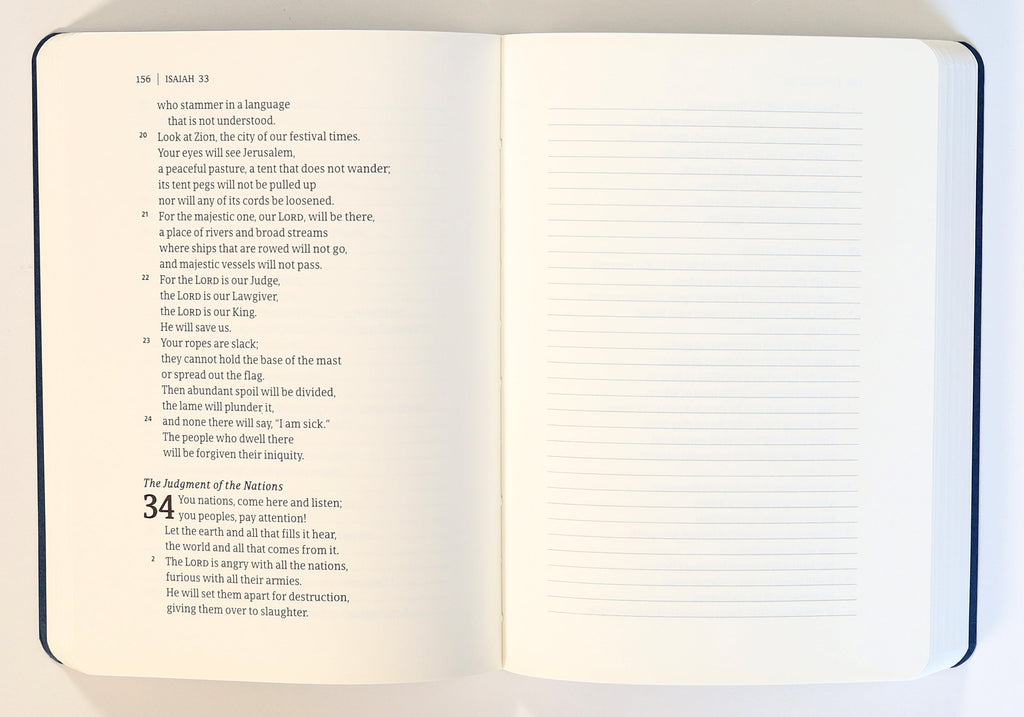 156 | ISAIAH 33
who stammer in a language
that is not understood.
20 Look at Zion, the city of our festival times.
Your eyes will see Jerusalem,
a peaceful pasture, a tent that does not wander;
its tent pegs will not be pulled up
nor will any of its cords be loosened.
21 For the majestic one, our LORD, will be there,
a place of rivers and broad streams
where ships that are rowed will not go,
and majestic vessels will not pass.
22 For the LORD is our Judge,
the LORD is our Lawgiver,
the LORD is our King.
He will save us.
23 Your ropes are slack;
they cannot hold the base of the mast
or spread out the flag.
Then abundant spoil will be divided,
the lame will plunder it,
24 and none there will say, “I am sick.”
The people who dwell there
will be forgiven their iniquity.
The Judgment of the Nations
34 You nations, come here and listen;
you peoples, pay attention!
Let the earth and all that fills it hear,
the world and all that comes from it.
2 The LORD is angry with all the nations,
furious with all their armies.
He will set them apart for destruction,
giving them over to slaughter.